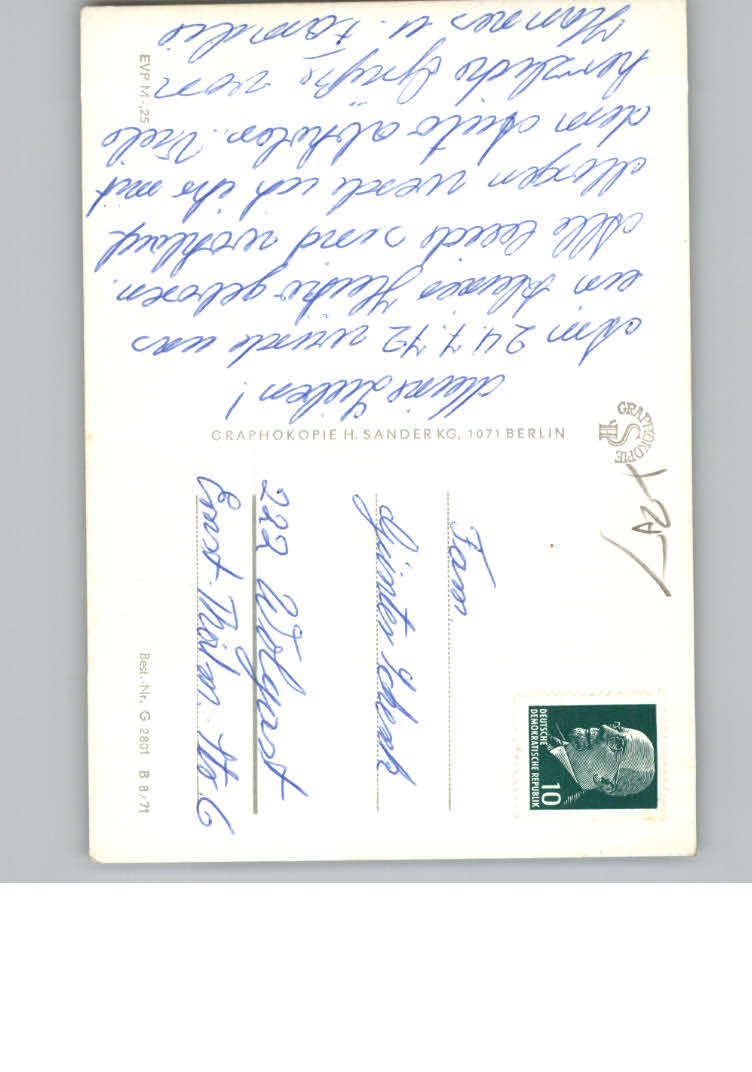 Meine Lieben!
Am 24.7.72 wurde uns
ein kleines geboren.
Alle beide sind wohlauf.
Morgen werde ich ihr mit
dem Auto abholen. Viele
herzliche Grüße von
Hannes u. Familie
EVP M -,25
GRAPHOKOPIE H. SANDER KG, 1071 BERLIN
GRAPHOKOPIE
HS
Fam.
Günter
222 Wolgast
Ernst-Thälm.-Str. 6
DEUTSCHE
DEMOKRATISCHE REPUBLIK
10
Best.-Nr. G 2801 B 8/71